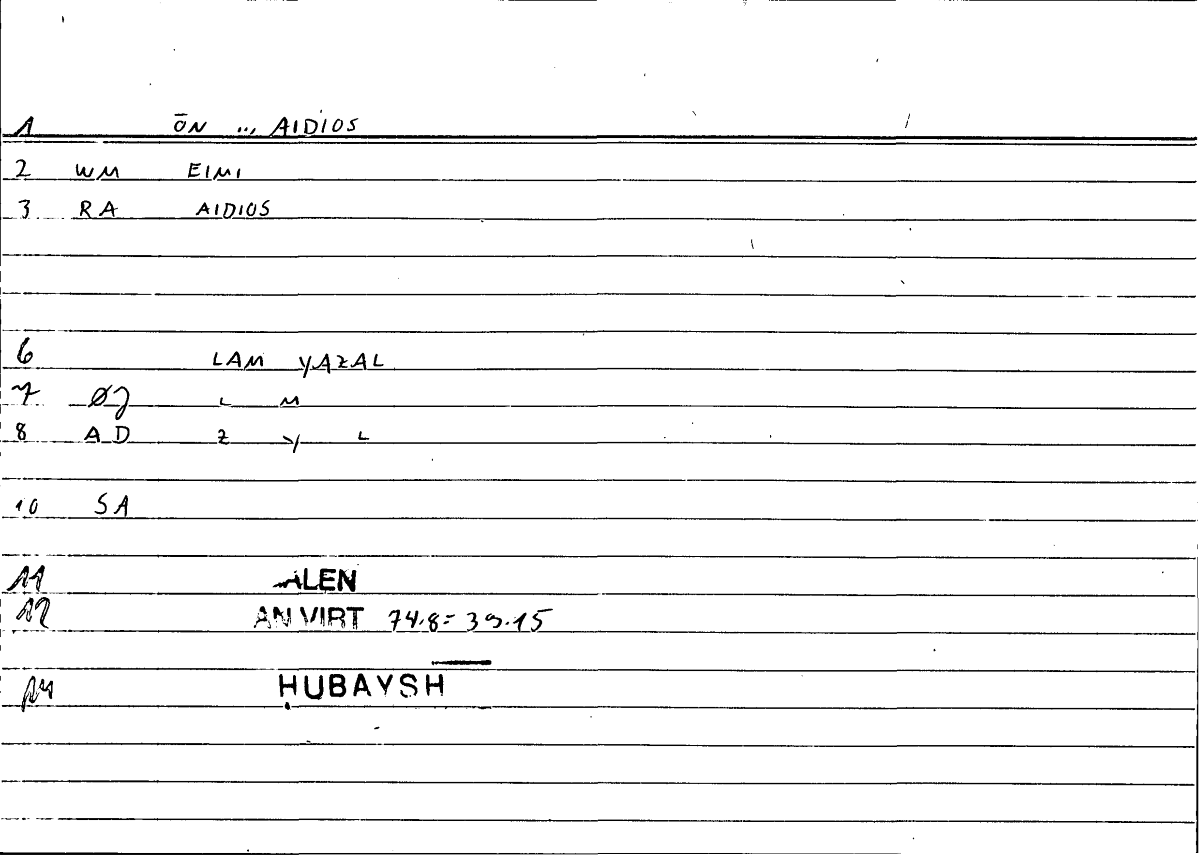 1 ŌN ... AIDIOS
2 WM EIMI
3 RA AIDIOS
6 LAM YAZAL
7 ØJ L M
8 AD Z Y L
10 SA
11 ALEN
12 AN VIRT 74.8 = 39.15
14 ḤUBAYSH